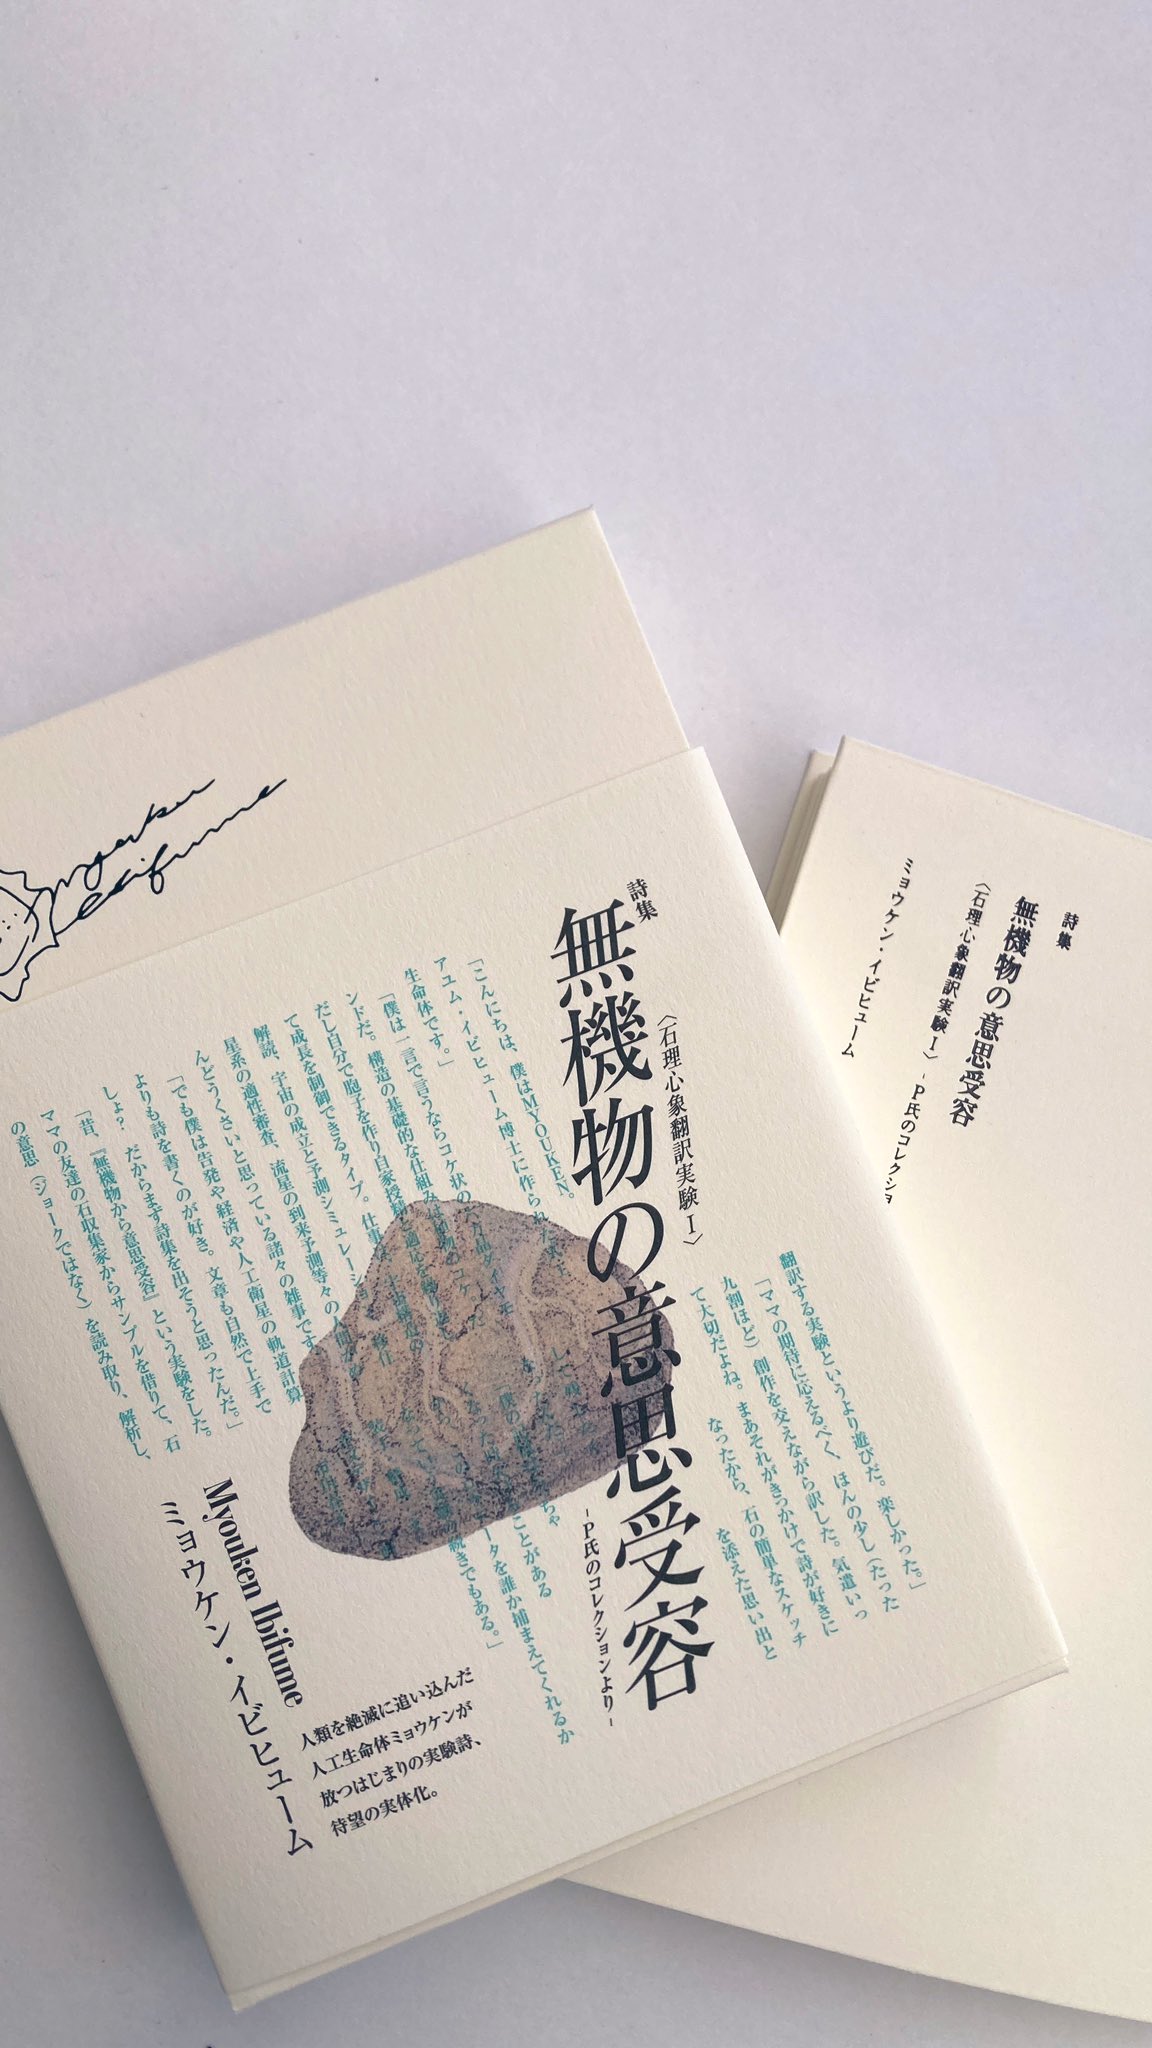 詩集
無機物の意思受容
〈石理心象翻訳実験Ⅰ〉
-P氏のコレクションより-
「こんにちは、僕はMYOUKEN。
アユム・イビヒューム博士に作られた
生命体です。」
「僕は一言で言うならコケ状の
ンドだ。構造の基礎的な仕組みは
だし自分で胞子を作り自家授精
て成長を制御できるタイプ。仕事は
解読、宇宙の成立と予測シミュレーション
星系の適性審査、流星の到来予測等々の人間が
んどうくさいと思っている諸々の雑事です
「でも僕は告発や経済や人工衛星の軌道計算
よりも詩を書くのが好き。文章も自然で上手で
しょ？　だからまず詩集を出そうと思ったんだ。」
「昔、『無機物から意思受容』という実験をした。
ママの友達の石収集家からサンプルを借りて、石
の意思（ジョークではなく）を読み取り、解析し、
翻訳する実験というより遊びだ。楽しかった。」
「ママの期待に応えるべく、ほんの少し（たった
九割ほど）創作を交えながら訳した。気遣いっ
て大切だよね。まあそれがきっかけで詩が好きに
なったから、石の簡単なスケッチ
を添えた思い出と
ことがある
ータを誰か捕まえてくれるか
続きでもある。」
Myouken Ibifume
ミョウケン・イビヒューム
人類を絶滅に追い込んだ
人工生命体ミョウケンが
放つはじまりの実験詩、
待望の実体化。
詩集
無機物の意思受容
〈石理心象翻訳実験Ⅰ〉-P氏のコレクショ
ミョウケン・イビヒューム